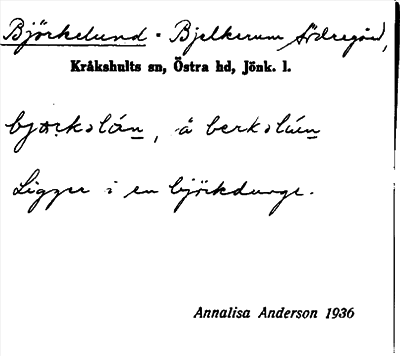 Björkelund - Bjelkerum Södregård,
Kråkshults sn, Östra hd, Jönk. l.
bjærkəlán, å berkəláun
Ligger i en björkdunge.
Annalisa Anderson 1936